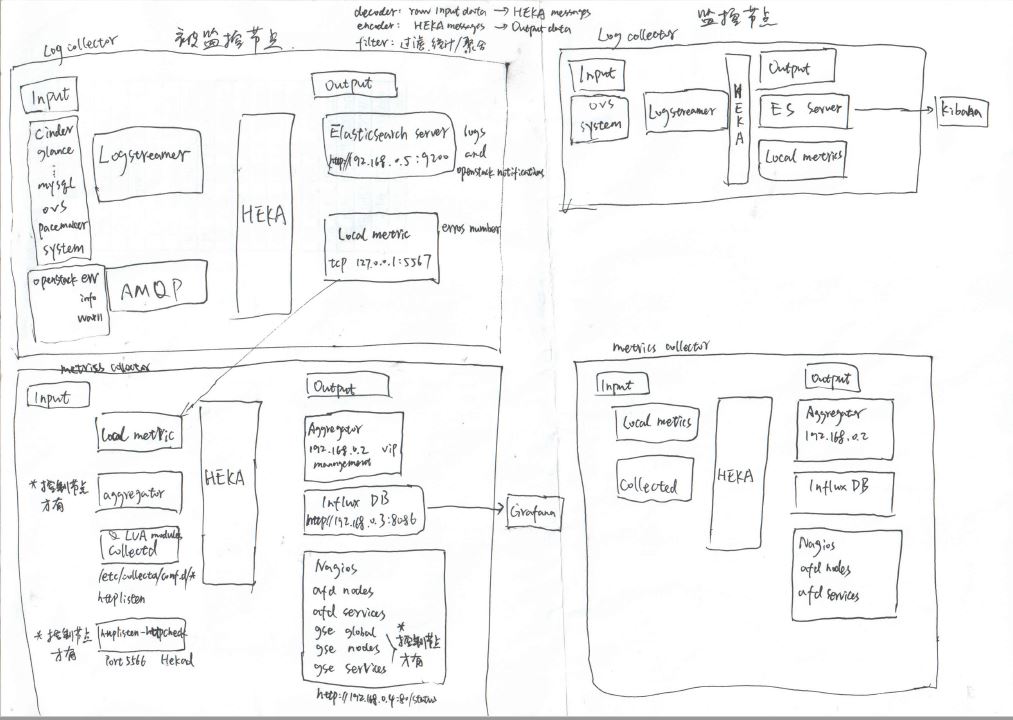 decoder: raw Input data → HEKA messages
encoder: HEKA messages → Output data
filter: 过滤, 统计/聚合
被监控节点
Log collector
Input
Cinder
glance
⋮
mysql
ovs
pacemaker
system
Logstreamer
openstack err
info
warn
AMQP
HEKA
Output
Elasticsearch server
http://192.168.0.5:9200
logs
and
openstack notifications
Local metric
tcp 127.0.0.1:5567
erros number
metriss collector
Input
Local metric
* 控制节点
才有
aggregator
LUA modules
Collectd
/etc/collectd/conf.d/*
httplisten
* 控制节点
才有
httplisten-httpcheck
Port 5566 Hekad
HEKA
Output
Aggregator
192.168.0.2 vip
management
Influx DB
http://192.168.0.3:8086
Grafana
Nagios
afd nodes
afd services
gse global
gse nodes
gse services
* 控制节点
才有
http://192.168.0.4:80/status
监控节点
Log collector
Input
ovs
system
Logstreamer
HEKA
Output
ES server
Local metrics
kibana
metrics collector
Input
Local metrics
Collected
HEKA
Output
Aggregator
192.168.0.2
Influx DB
Nagios
afd nodes
afd services